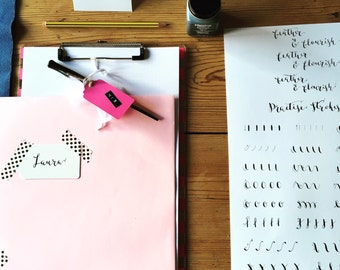 Laura
feather
& flourish
feather
& flourish
feather
& flourish
Practise Strokes